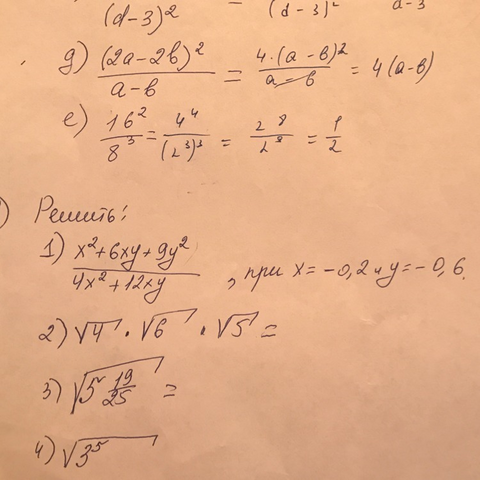 (d-3)² = (d-3)² d-3
д) (2a-2b)²/(a-b) = 4·(a-b)²/(a-b) = 4(a-b)
е) 16²/8³ = 4⁴/(2³)³ = 2⁸/2⁹ = 1/2
) Решить:
1) (x²+6xy+9y²)/(4x²+12xy) , при x=-0,2 и y=-0,6.
2) √4 · √6 · √5 =
3) √(5 19/25) =
4) √3⁵